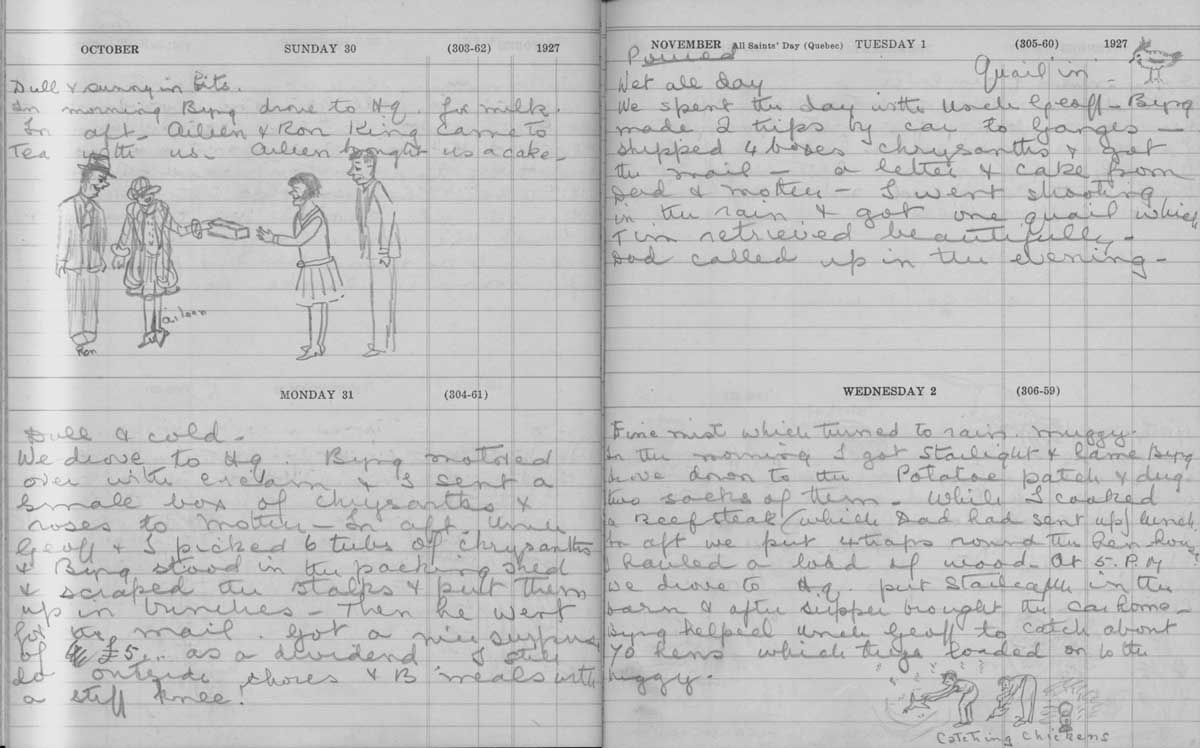 OCTOBER SUNDAY 30 (303-62) 1927
Dull & sunny in bits.
In morning Byng drove to Hq. for milk.
In aft. Aileen & Ron King came to
Tea with us. Aileen brought us a cake.
Aileen
Ron
MONDAY 31 (304-61)
Dull & cold.
We drove to Hq. Byng motored
over with cream & I sent a
small box of chrysanths &
roses to Mother - In aft. Uncle
Geoff & I picked 6 tubs of chrysanths
& Byng stood in the packing shed
& scraped the stalks & put them
up in bunches - Then he went
for the mail. Got a nice surprise
of £5 as a dividend I still
do outside chores & B meals with
a stiff knee!
NOVEMBER All Saints' Day (Quebec) TUESDAY 1 (305-60) 1927
Poured Quail in
Wet all day
We spent the day with Uncle Geoff - Byng
made 2 trips by car to Ganges -
shipped 4 boxes chrysanths & got
the mail - a letter & cake from
Dad & Mother - I went shooting
in the rain & got one quail which
Tim retrieved beautifully -
Dad called up in the evening -
WEDNESDAY 2 (306-59)
Fine mist which turned to rain. muggy.
In the morning I got Starlight & Byng
drove down to the Potatoe patch & dug
two sacks of them - While I cooked
a Beefsteak (which Dad had sent up) lunch
In aft we put 4 traps round the hen house
I hauled a load of wood. At 5. P.M
we drove to H.q. put in the
barn & after supper brought the car home -
Byng helped Uncle Geoff to catch about
70 hens which they loaded on to the
buggy.
Catching Chickens